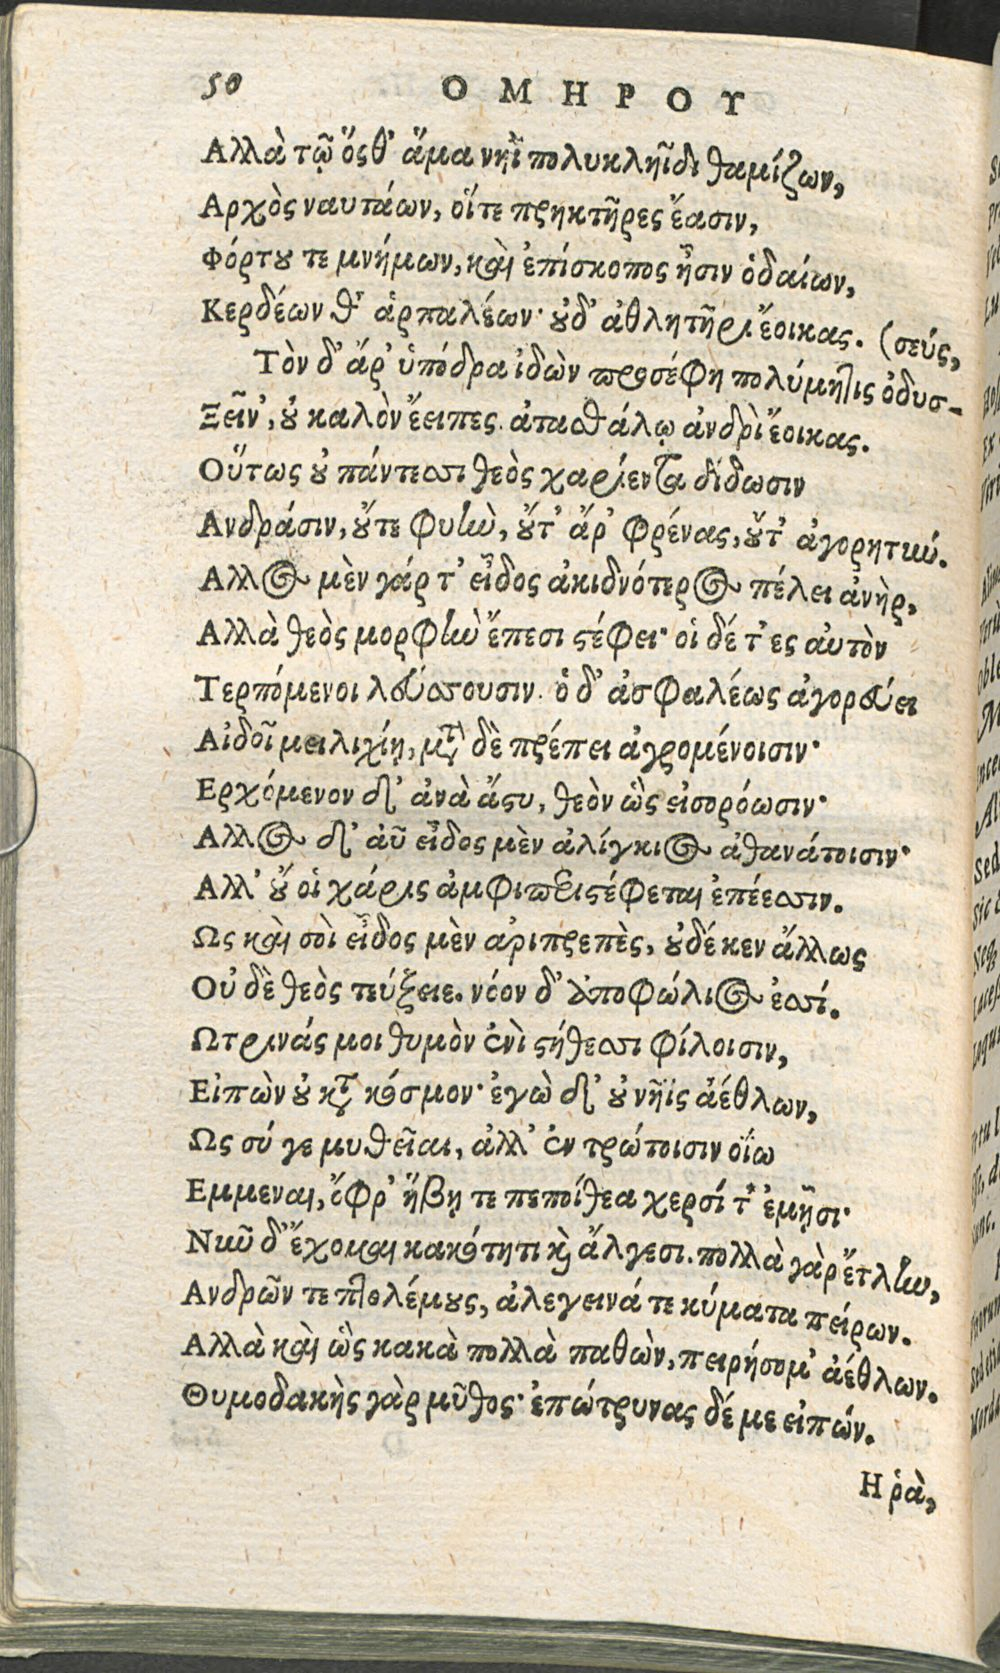 50 ΟΜΗΡΟΥ
Αλλὰ τῷ ὅς θ' ἅμα νηῒ πολυκληῗδι θαμίζων,
Αρχὸς ναυτάων, οἵτε πρηκτῆρες ἔασιν,
Φόρτου τε μνήμων, καὶ ἐπίσκοπος ᾖσιν ὁδαίων,
Κερδέων θ' ἁρπαλέων· οὐδ' ἀθλητῆρι ἔοικας. (σεύς,
Τὸν δ' ἄρ' ὑπόδρα ἰδὼν προσέφη πολύμητις ὀδυσ-
Ξεῖν', οὐ καλὸν ἔειπες. ἀτασθάλῳ ἀνδρὶ ἔοικας.
Οὕτως οὐ πάντεσσι θεὸς χαρίεντα δίδωσιν
Ανδράσιν, οὔτε φυὴν, οὔτ' ἄρ' φρένας, οὔτ' ἀγορητιώ.
Αλλος μὲν γάρ τ' εἶδος ἀκιδνότερος πέλει ἀνὴρ,
Αλλὰ θεὸς μορφὴν ἔπεσι στέφει· οἱ δέ τ' ες αὐτὸν
Τερπόμενοι λεύσσουσιν. ὁ δ' ἀσφαλέως ἀγορεύει
Αἰδοῖ μειλιχίῃ, μετὰ δὲ πρέπει ἀγρομένοισιν·
Ερχόμενον δ' ἀνὰ ἄστυ, θεὸν ὣς εἰσορόωσιν·
Αλλος δ' αὖ εἶδος μὲν ἀλίγκιος ἀθανάτοισιν·
Αλλ' οὔ οἱ χάρις ἀμφιπεριστέφεται ἐπέεσσιν.
Ως καὶ σοὶ εἶδος μὲν ἀριπρεπὲς, οὐδέ κεν ἄλλως
Οὐ δὲ θεὸς τεύξειε. νόον δ' ἀποφώλιος ἐσσί.
Ωτρινάς μοι θυμὸν ἐνὶ στήθεσσι φίλοισιν,
Εἰπὼν οὐ κατὰ κόσμον· ἐγὼ δ' οὐ νῆϊς ἀέθλων,
Ως σύ γε μυθεῖαι, ἀλλ' ἐν τρώτοισιν οἴω
Εμμεναι, ὄφρ' ἥβῃ τε πεποίθεα χερσί τ' ἐμῇσι·
Νῦν δ' ἔχομαι κακότητι καὶ ἄλγεσι. πολλὰ γὰρ ἔτλην,
Ανδρῶν τε πτολέμους, ἀλεγεινά τε κύματα πείρων.
Αλλὰ καὶ ὣς κακὰ πολλὰ παθὼν, πειρήσομ' ἀέθλων.
Θυμοδακὴς γὰρ μῦθος· ἐπώτρυνας δέ με εἰπών.
Η ῥὰ,